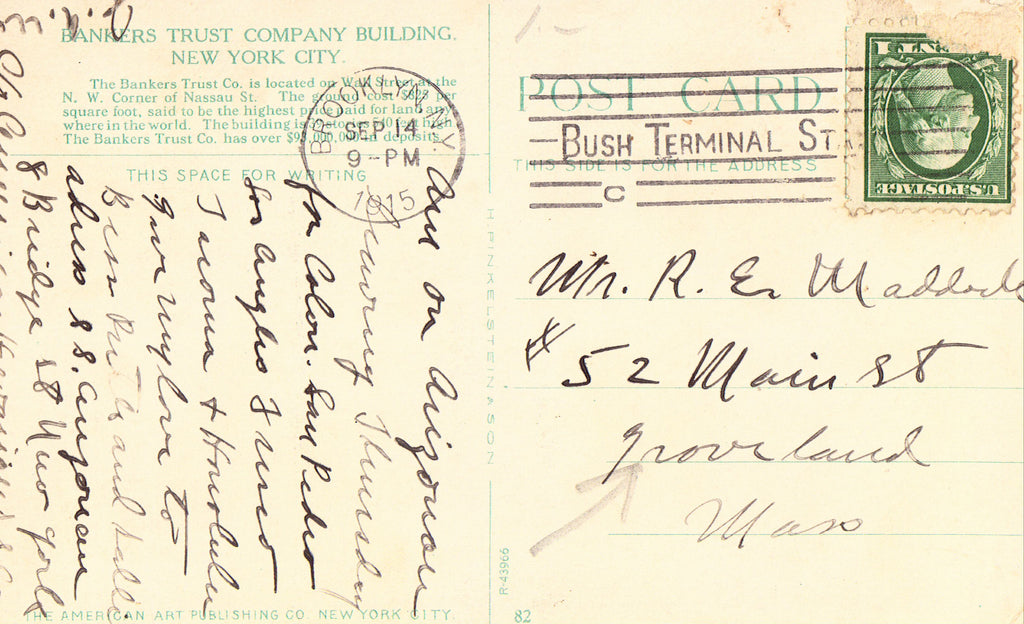 BANKERS TRUST COMPANY BUILDING.
NEW YORK CITY.
The Bankers Trust Co. is located on Wall Street at the
N. W. Corner of Nassau St. The ground cost $825 per
square foot, said to be the highest price paid for land any
where in the world. The building is 540 feet high
The Bankers Trust Co. has over $93,000,000 in deposits.
THIS SPACE FOR WRITING
BROOKLYN N.Y.
SEP 14
9-PM
1915
Am on Arizonan
leaving Thursday
for Colon. San Pedro
Los Angles
Tacoma & Honolulu
give my love to
and
adress SS. Arizonan
8 Bridge St New York
THE AMERICAN ART PUBLISHING CO. NEW YORK CITY.
H. FINKELSTEIN & SON
R-43966
82
POST CARD
BUSH TERMINAL STA.
C
THIS SIDE IS FOR THE ADDRESS
U.S. POSTAGE
Mr. R. E. Maddock
# 52 Main st
Groveland
Mass